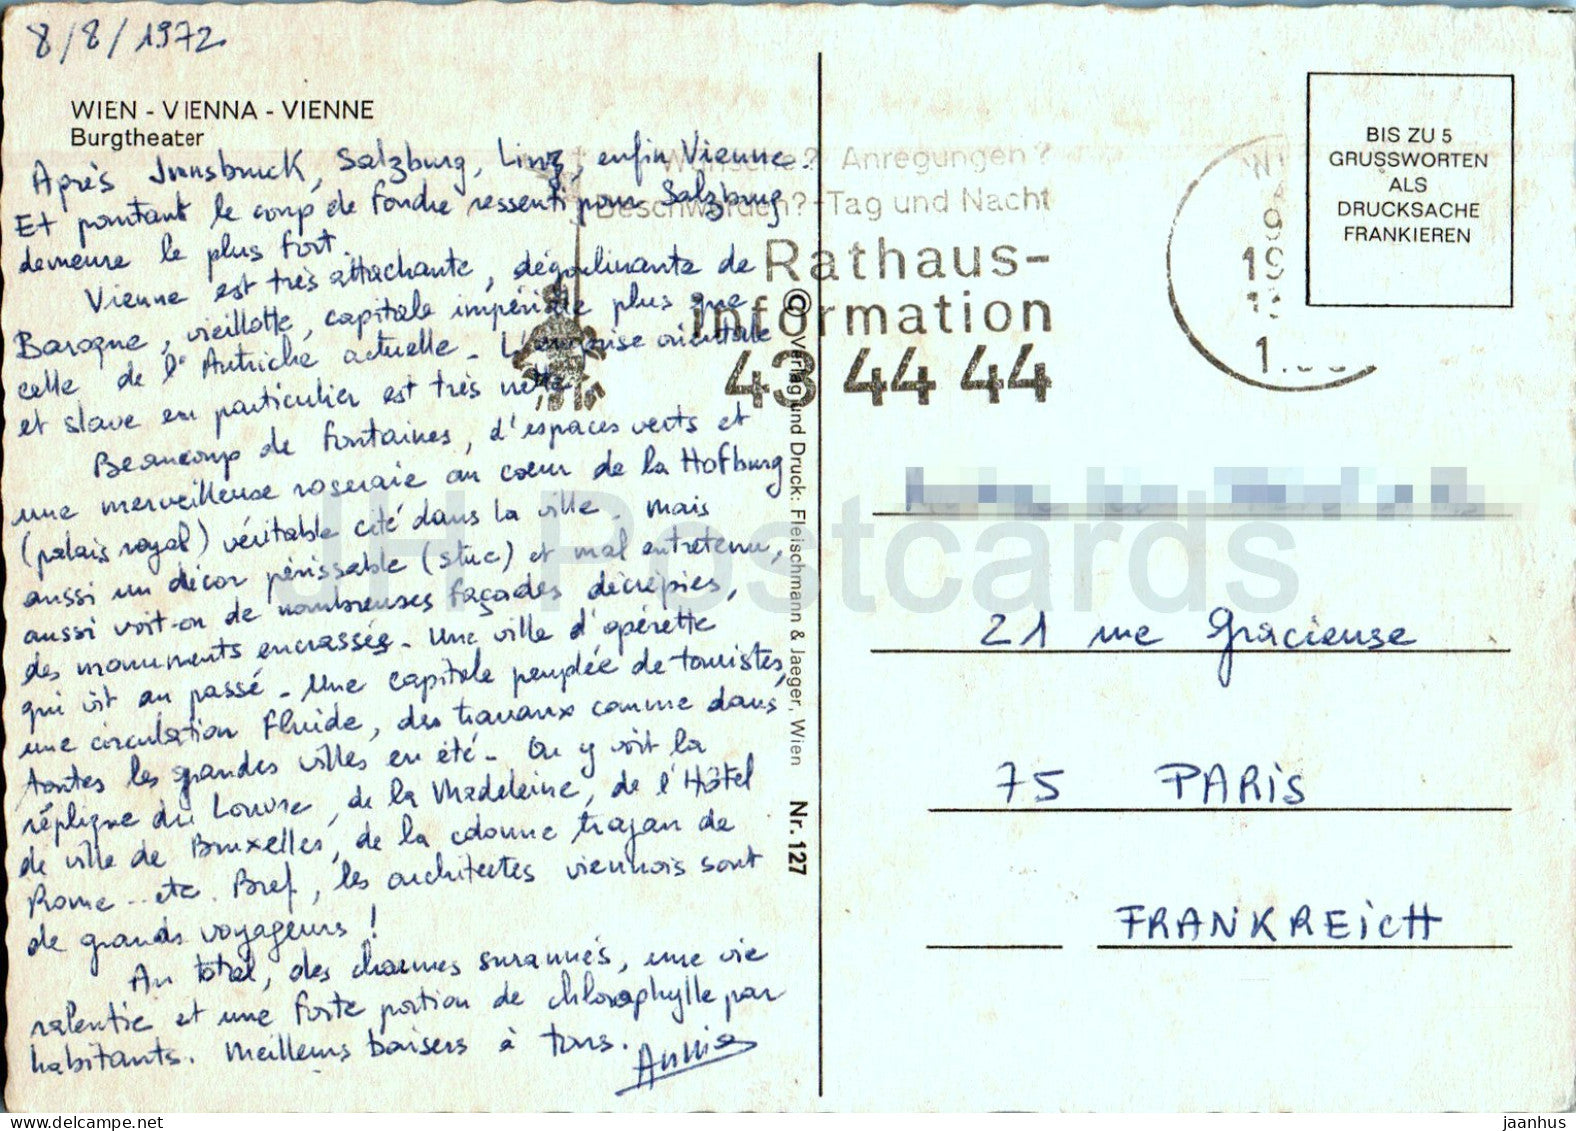 8/8/1972
WIEN - VIENNA - VIENNE
Burgtheater
Après Innsbruck, Salzburg, Linz, enfin Vienne.
Et pourtant le coup de foudre ressenti pour Salzburg
demeure le plus fort.
Vienne est très attachante, dégoulinante de
Baroque, vieillotte, capitale impériale plus que
celle de l'Autriche actuelle. L'emprise orientale
et slave en particulier est très nette.
Beaucoup de fontaines, d'espaces verts et
une merveilleuse roseraie au coeur de la Hofburg
(palais royal) véritable cité dans la ville. Mais
aussi un décor périssable (stuc) et mal entretenu,
aussi voit-on de nombreuses façades décrépies,
des monuments encrassés. Une ville d'opérette
qui vit au passé - Une capitale peuplée de touristes,
une circulation fluide, des travaux comme dans
toutes les grandes villes en été - On y voit la
réplique du Louvre, de la Madeleine, de l'Hôtel
de ville de Bruxelles, de la colonne trajan de
Rome .. etc. Bref, les architectes viennois sont
de grands voyageurs !
Au total, des charmes surannés, une vie
ralentie et une forte portion de chlorophylle par
habitants. Meilleurs baisers à tous.
Annie
Wünsche? Anregungen?
Beschwerden? Tag und Nacht
Rathaus-
information
43 44 44
© Verlag und Druck: Fleischmann & Jaeger, Wien Nr. 127
BIS ZU 5
GRUSSWORTEN
ALS
DRUCKSACHE
FRANKIEREN
21 rue Gracieuse
75 PARIS
FRANKREICH
JH Postcards
hipstamp.com/store/jaanhus